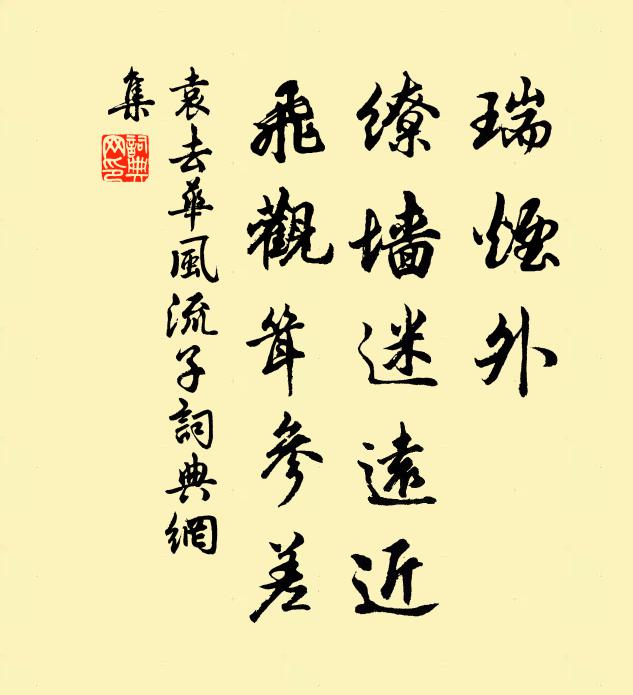 瑞煙外
繚墙迷遠近
飛觀聳參差
袁去華風流子詞典網
集
詞典
网印